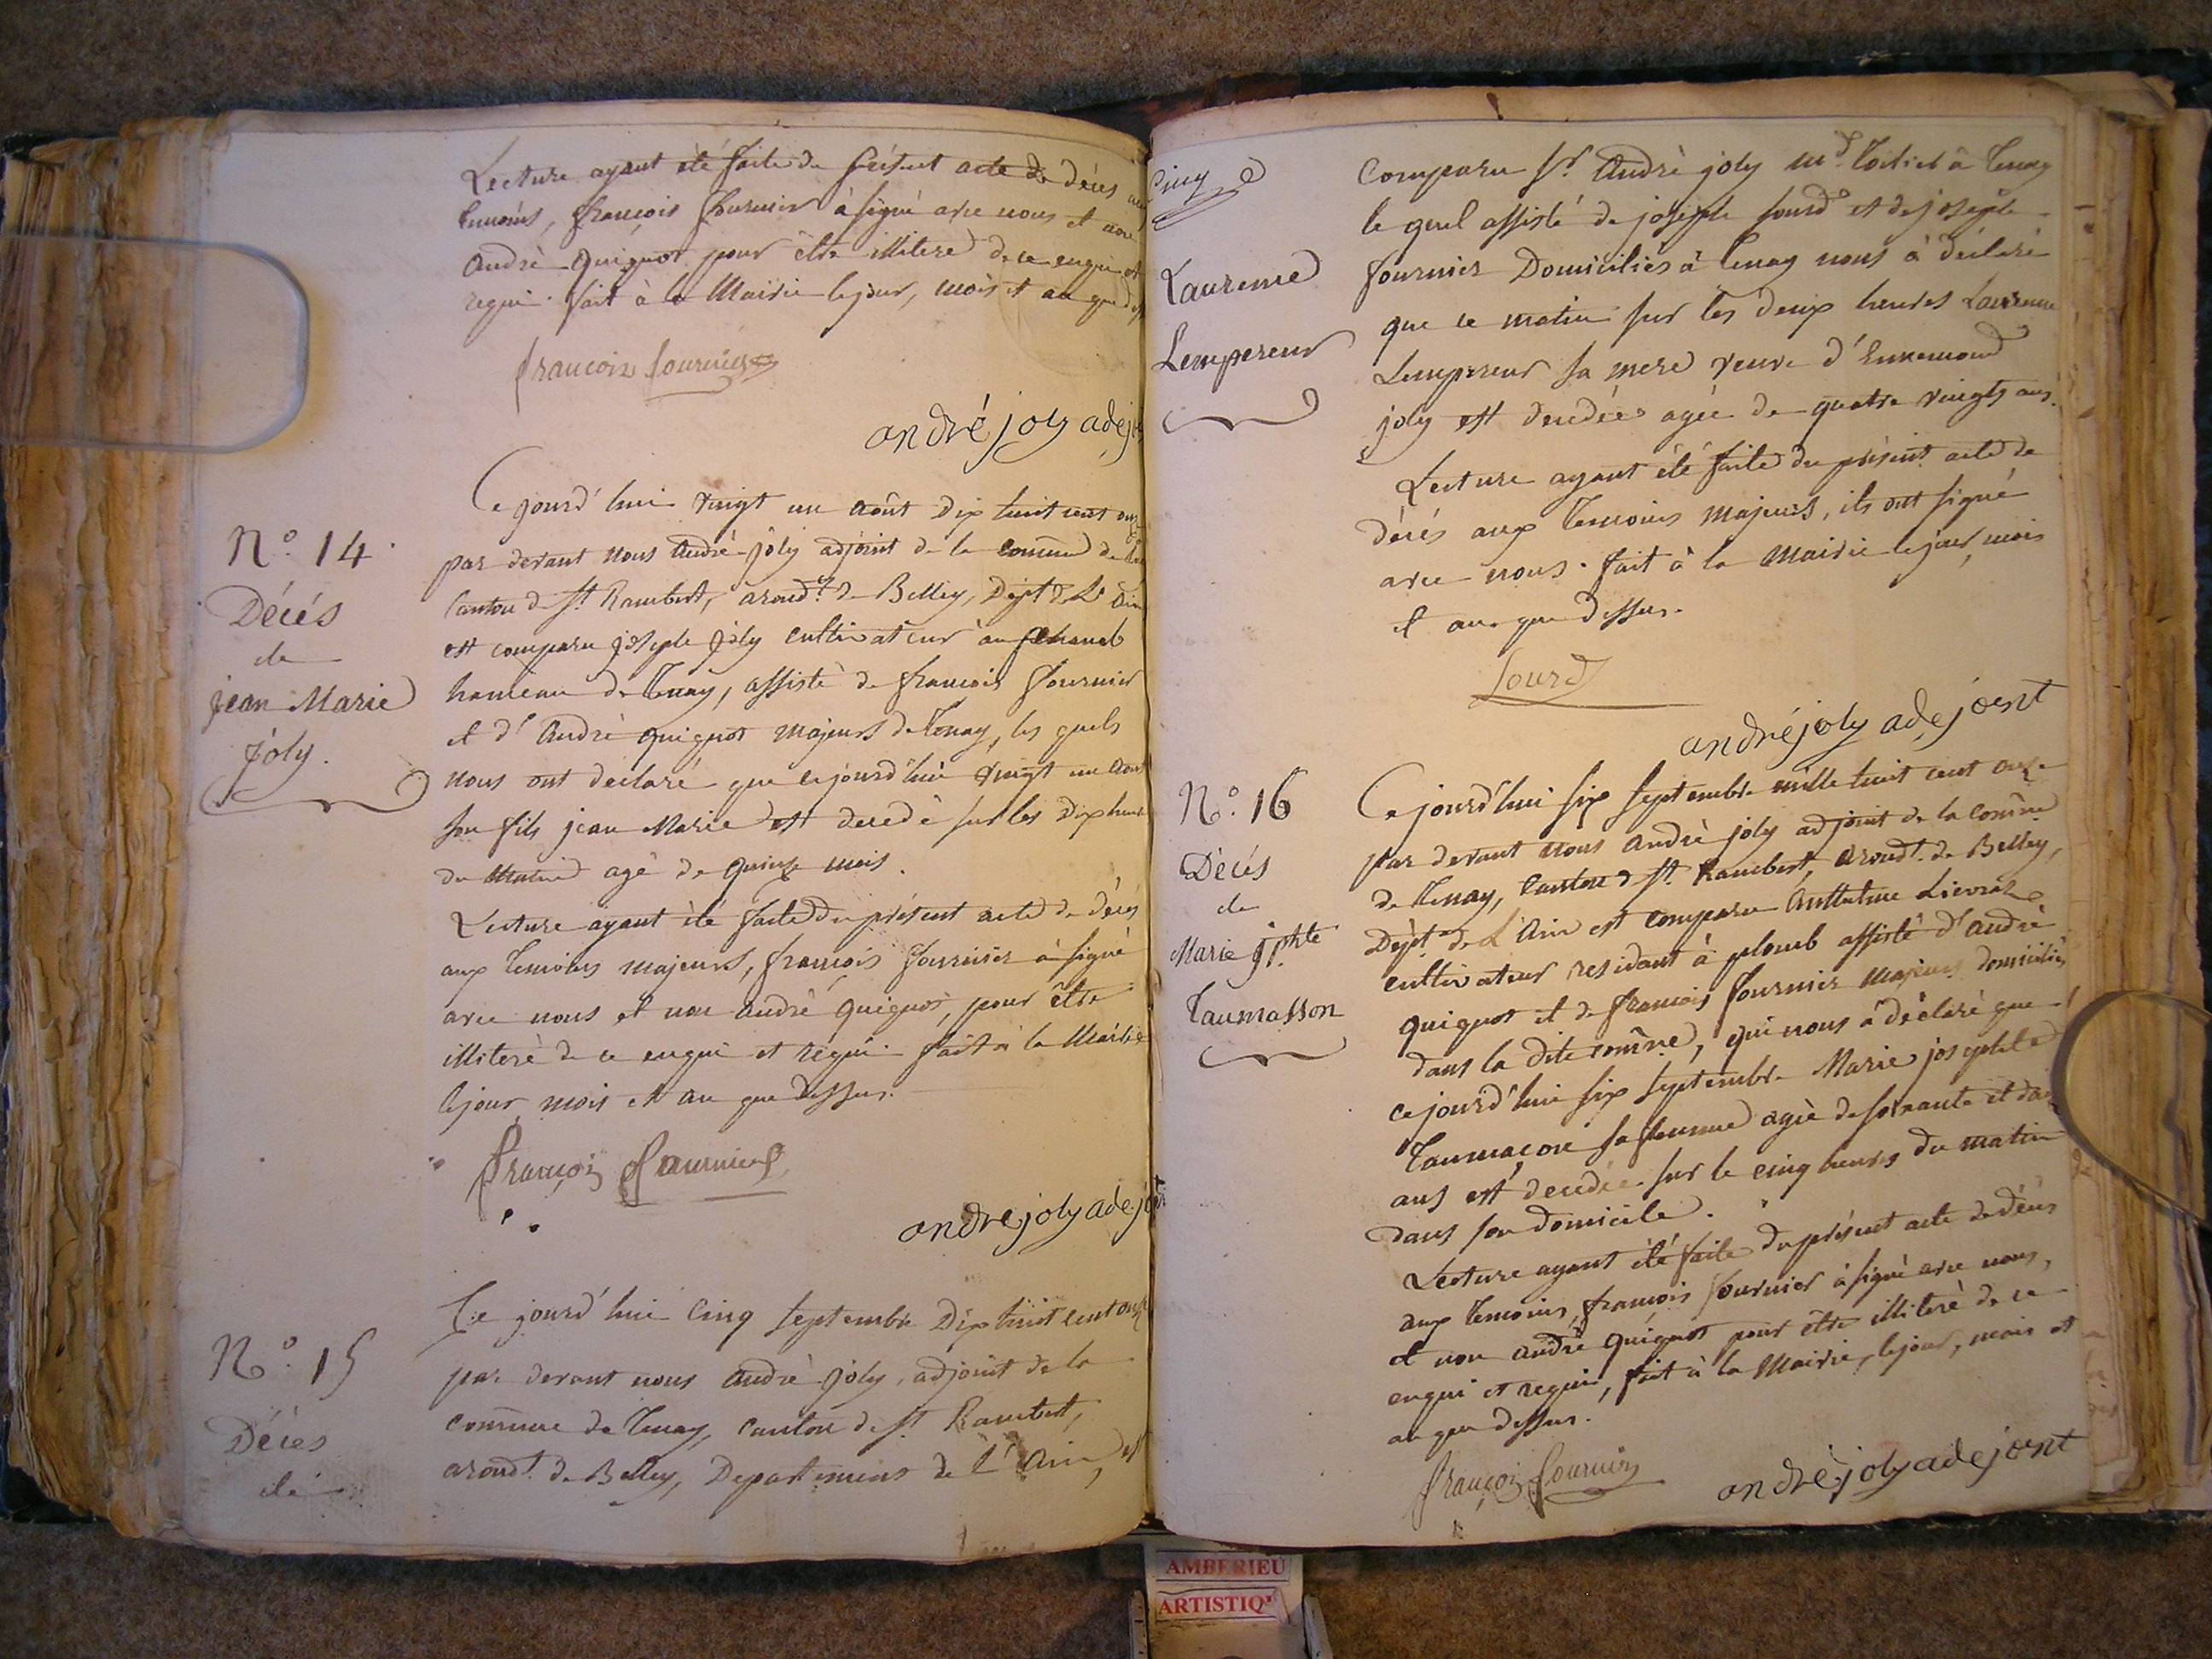 Lecture ayant été faite du présent acte de décés aux
temoins, françois fournier à signé avec nous et non
andrè quignot pour être illiteré de ce enquis et
requi. fait à la Mairie le jour, mois et an que dess
françois fournier
andré joly adej
N.º 14.
Décés
de
jean Marie
Joly.
Ce jourd'hui vingt un août dix huit cent onze
par devant nous andré joly adjoint de la comune de
canton de st Rambert, arond.t de Belley, Dept de L'ain
est comparu joseph joly cultivateur au
hameau de Tenay, assisté de françois fournier
et d'andrè quignot majeurs de Tenay, les quels
nous ont declaré que cejourd'hui vingt un aout
son fils jean Marie est decedé sur les dix heures
du matin agé de quinze mois.
Lecture ayant été faite du présent acte de décés
aux temoins majeurs, françois fournier à signé
avec nous et non andré quignot, pour être
illiteré de ce enqui et requi. fait à la Mairie
le jour mois et an que dessus.
françois fournier
andré joly adejoent
N.º 15
Décès
de
Ce jourd'hui cinq septembre dix huit cent onze
par devant nous andrè joly, adjoint de la
commune de Tenay, canton de st. Rambert,
arond.t de Belley, Departement de L'ain, est
Laurence
Lempereur
comparu sr. andrè joly md. à Tenay
le quel assisté de joseph lourd et de joseph
fournier Domiciliés à Tenay nous à déclaré
que ce matin sur les deux heures Laurence
Lempereur sa mere veuve d'Ennemond
joly est decedée agée de quatre vingts ans.
Lecture ayant été faite du présent acte de
décés aux temoins majeurs, ils ont signé
avec nous. fait à la Mairie le jour, mois
et an que dessus.
Lourd
andré joly adejoent
N.º 16
Décés
de
Marie jphte
Taumasson
Ce jourd'hui six septembre mille huit cent onze
par devant nous andrè joly adjoint de la comûne
de Tenay, canton de st. Rambert, arond.t de Belley,
Dèpt. de L'ain est comparu Antheline Lievraz
cultivateur residant à plomb assisté d'andrè
quignot et de françois fournier majeurs domiciliés
dans la dite comûne, qui nous à déclaré que
ce jourd'hui six septembre Marie josephte
Taumaçon sa femme agée de soixante et dix
ans est decedée sur le cinq heures du matin
dans son domicile.
Lecture ayant été faite du présent acte de décés
aux temoins, françois fournier à signé avec nous,
et non andrè quignot pour être illiteré de ce
enqui et requi, fait à la Mairie, le jour, mois et
an que dessus.
françois fournier
andrè joly adejoent
AMBERIEU
ARTISTIQ'